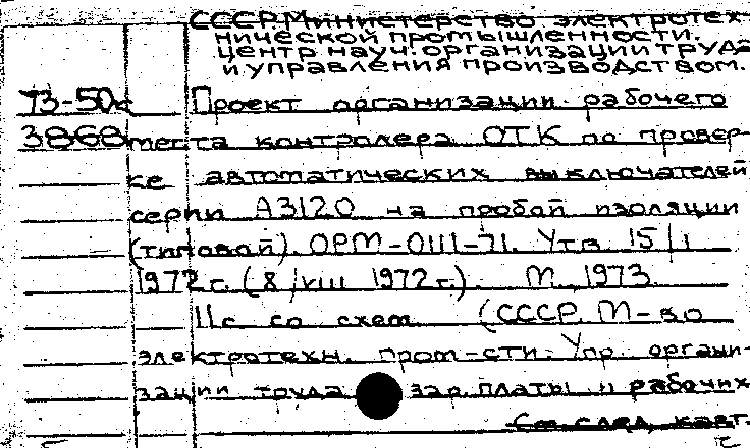 СССР. Министерство электротех-
нической промышленности.
Центр науч. организации труда
и управления производством.
73-50с Проект организации рабочего
3868 места контролера ОТК по провер-
ке автоматических выключателей
серии А3120 на пробой изоляции
(типовой). ОРМ-0111-71. Утв. 15/I
1972 г. (8/VIII 1972 г.). М., 1973
11с со схем. (СССР. М-во
электротехн. пром-сти. Упр. органи-
зации труда зар. платы и рабочих
См. след. карт.